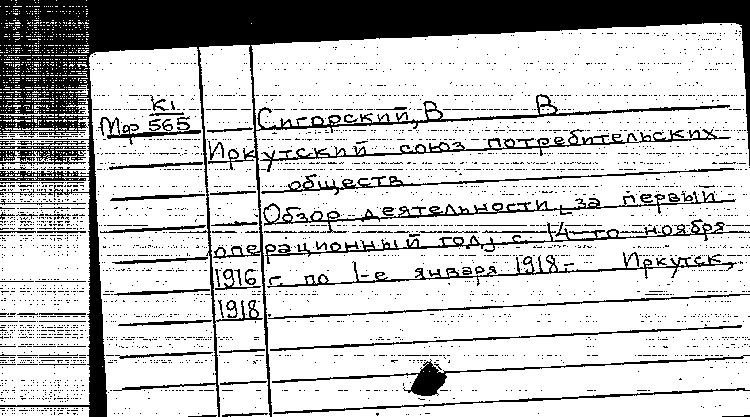 К1
Мф 565 Сигорский, В В
Иркутский союз потребительских
обществ
Обзор деятельности за первый
операционный год, с 14-го ноября
1916 г. по 1-е января 1918 г. Иркутск,
1918.